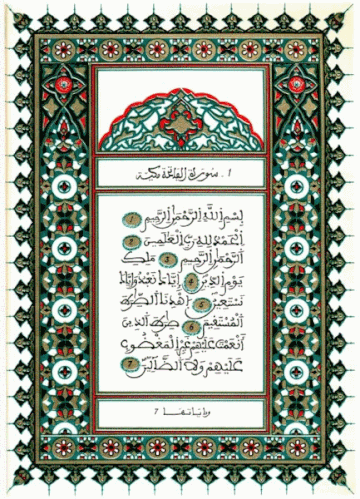 1. سورة الفاتحة مكية
بسم الله الرحمن الرحيم 1
الحمد لله رب العالمين 2
الرحمن الرحيم 3 ملك
يوم الدين 4 إياك نعبد وإياك
نستعين 5 اهدنا الصرط
المستقيم 6 صرط الذين
أنعمت عليهم غير المغضوب
عليهم ولا الضالين 7
وآياتها 7